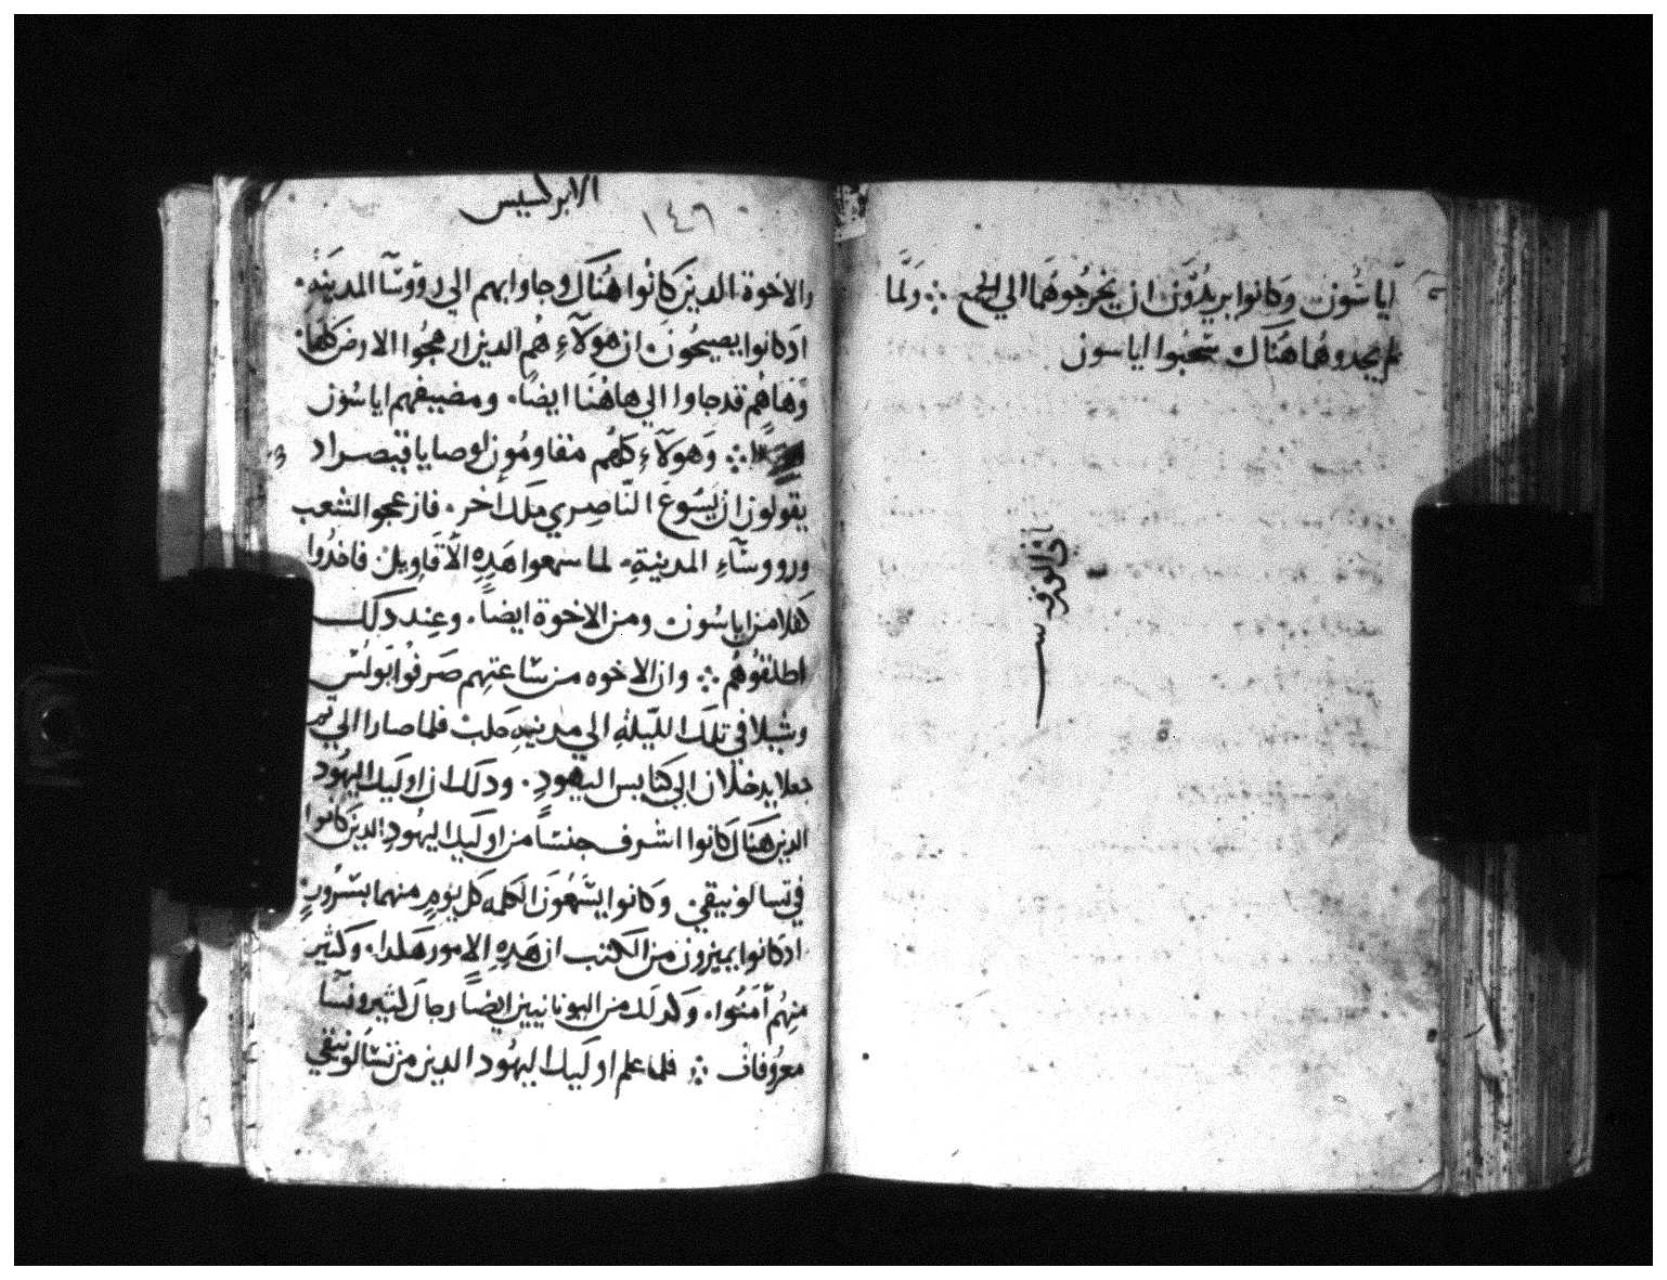 اياسُون وكانوا يريدُوَن ان يخرجُوهَما الي الجمع ܀ ولمَّا
لم يجدوهُما هَناك سَحَبُوا اياسون
الابركسيس
١٤٦
والاخوة الدين كَانُوا هُنَاك وجاوا بهم الي رووسَآ المدينَةِ.
ادكانوا يصيحُونَ. ان هَولآءِ هُم الدين ارهجُوا الارض كلهَا.
وَهَا هُم قد جاوا الي هاهُنَا ايضًا. ومضيفهم اياسُون
܀ وَهَولآءِ كلهُم مقاومُون لوصايا قيصر اد
يقولون ان يَسُوعَ النّاصِري ملَك اخر. فازعجوا الشعب
ورووسَآءِ المدينةِ. لما سمعوا هَدِهِ الآقَاوِيل فاخدُوا
كفلا من اياسُون ومن الاخوة ايضاً. وعِند دَلك
اطلقُوهُم ܀ وان الاخوه من سَاعتِهم صَرفُوا بَولُس
وشِيلا في تلَك الليّلةِ الي مدينةِ حَلب فلما صارا الي تم
جعلا يدخلان الي كنايس اليهودِ. ودلَك ان اوليَك اليهُود
الدين هَنَاك كَانوا اشرف جنسَاً من اوليَك اليهُودِ الدين كانوا
في تسالونيقي. وَكانوا يسَمعُونَ الكلمه كَل يومٍ منهما بسرُورٍ
ادكانوا يميزون من الكتب ان هَدِهِ الامور هَكدا. وكثير
منِهُم آمَنُوا. وَكدلَك من اليونانيين ايضاً رجال كثير ونسَآ
معرُوفات ܀ فلما علم اوليَك اليهُود الدين من تسَالونيقي